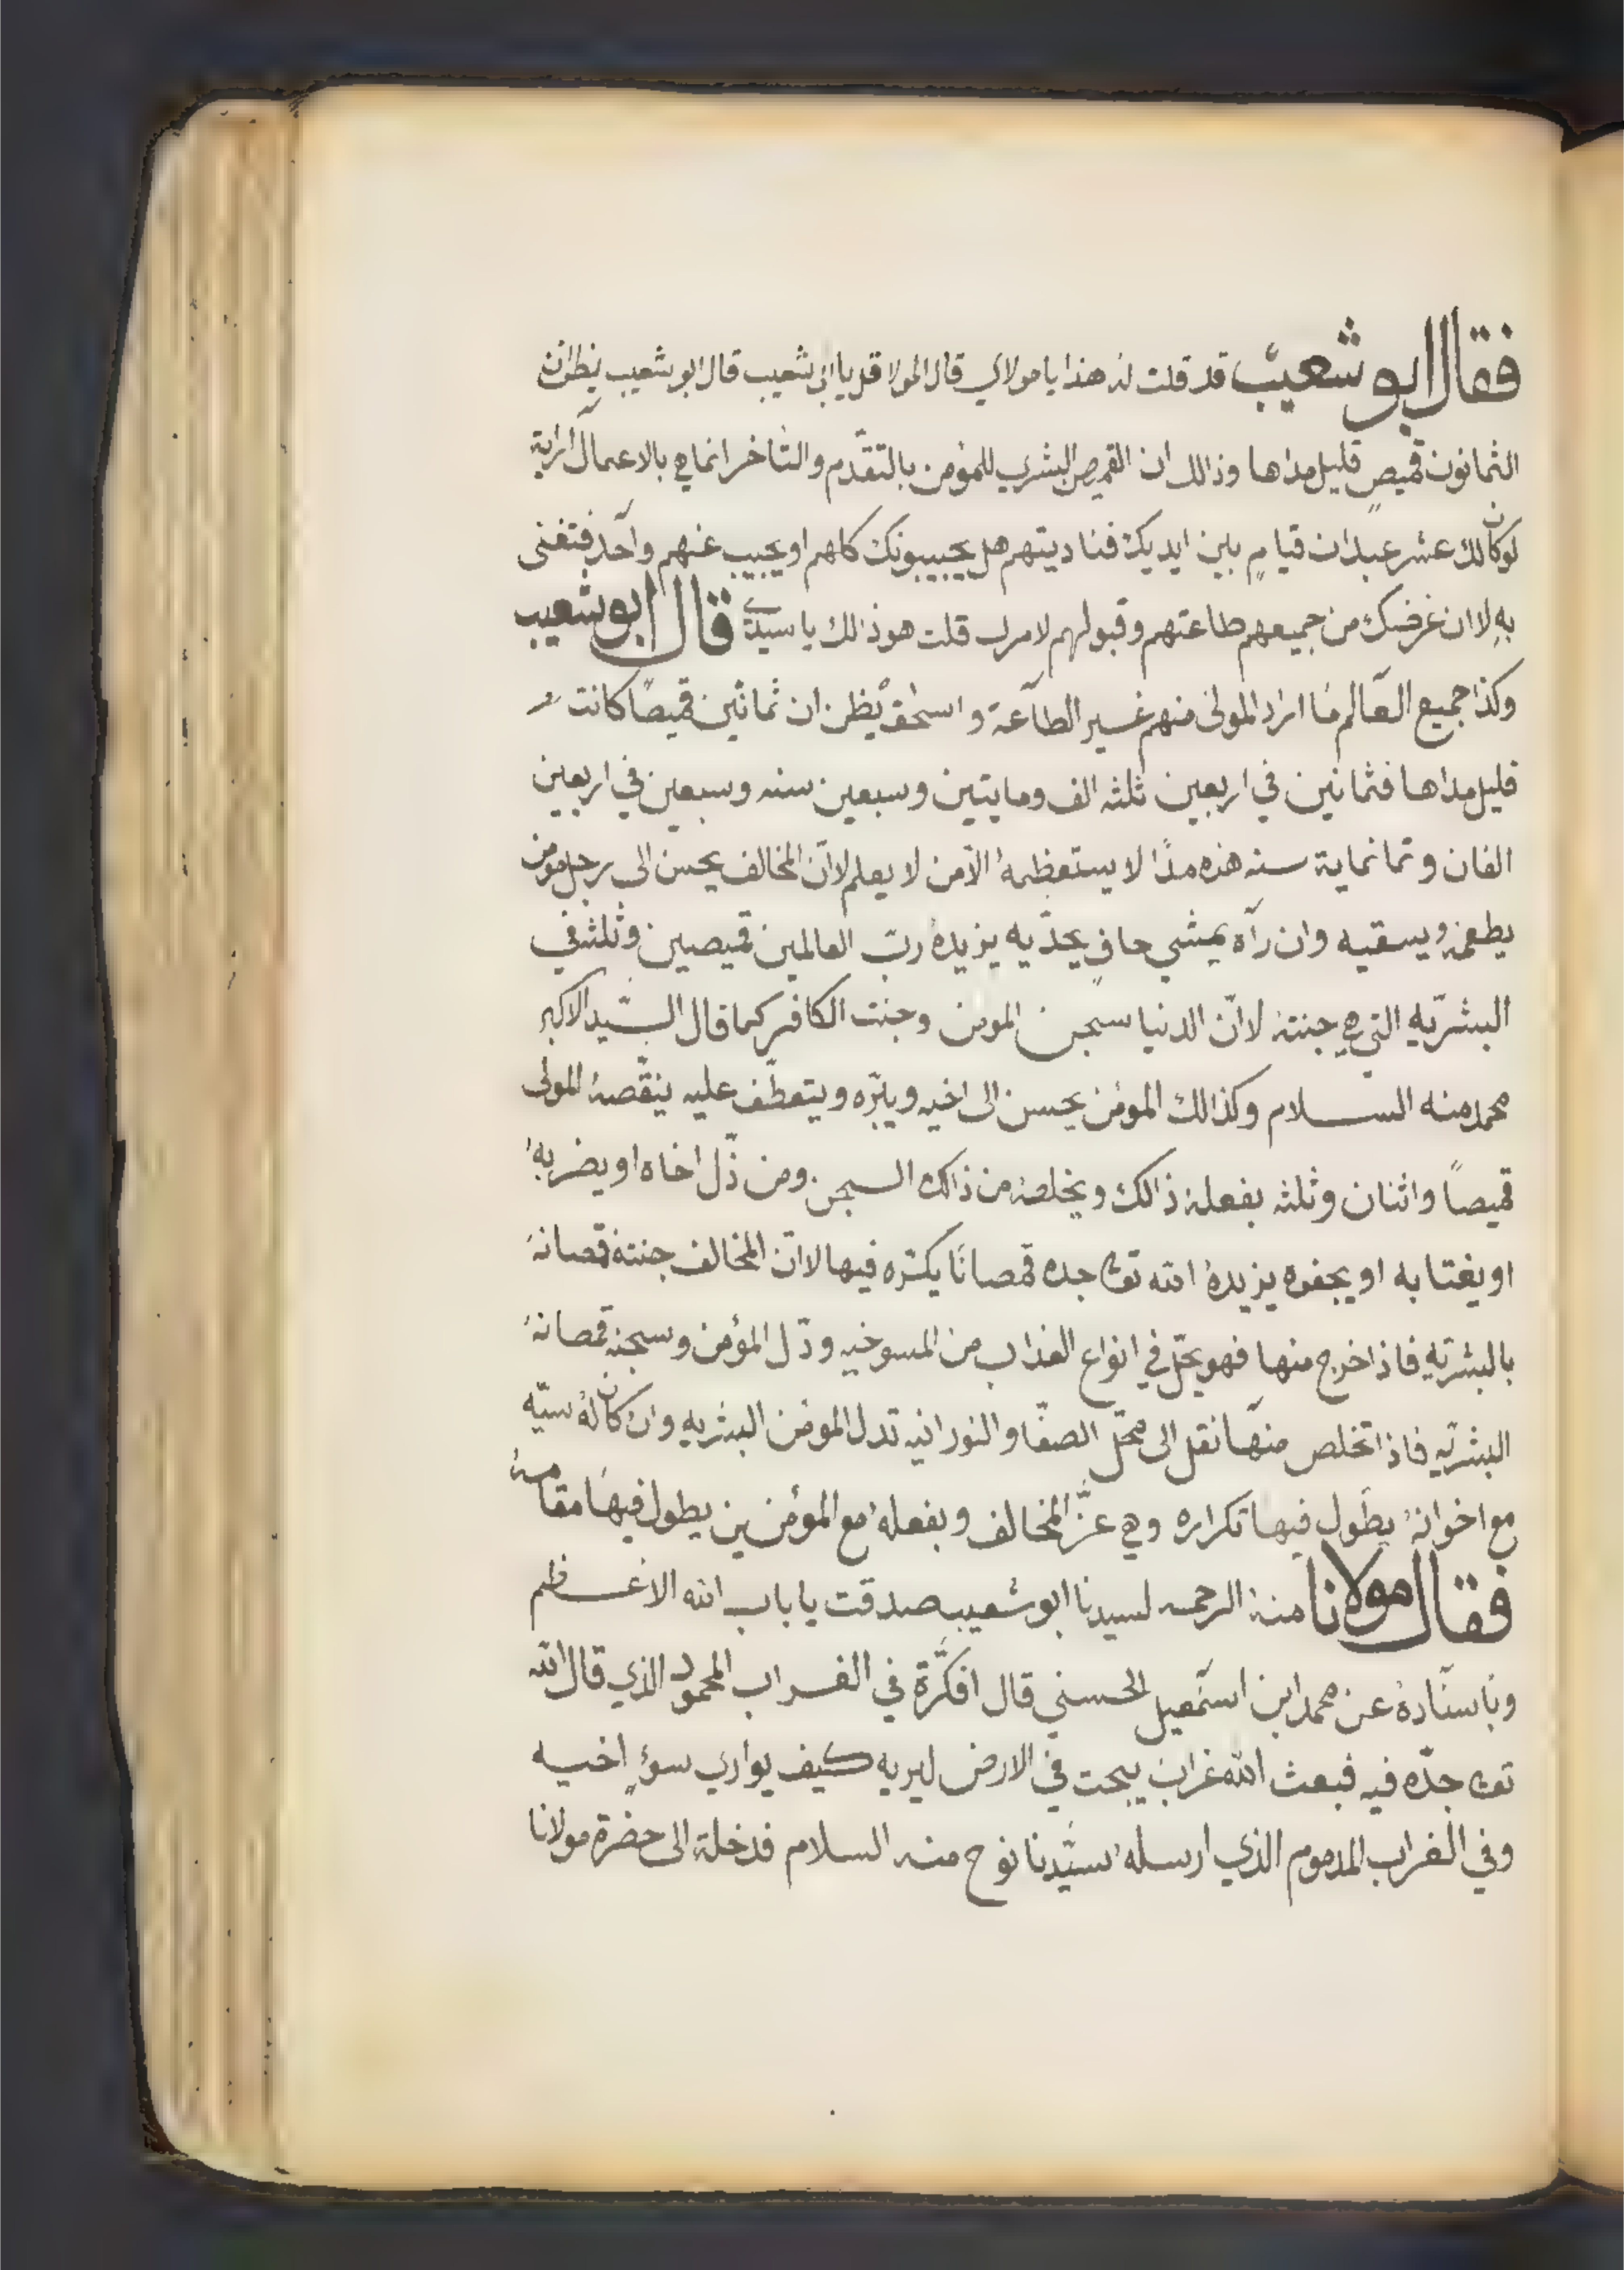 فقال ابو شعيب قد قلت له هذا يا مولاي قال المولا قل يا ابي شعيب قال ابو شعيب يظن ان
الثمانون قميصٍ قليل مداها وذالك ان القميص البشري للمؤمن بالتقدّم والتاخر انما هي بالاعمال أراية
لو كان لك عشر عبدان قيامٍ بين ايديك فناديتهم هل يجيبونك كلهم او يجيب عنهم واحد فتغنى
بهِ لا ان غرضك من جميعهم طاعتهم وقبولهم لامرك قلت هو ذالك يا سيدي قال ابو شعيب
وكذا جميع العالم ما اراد المولى منهم غير الطاعة واسحق يظن ان ثمانين قميصًا كانت
قليل مداها فثمانين في اربعين ثلثه الف ومايتين وسبعين سنه وسبعين في اربعين
الفان وثمانماية سنه هذه مدًا لا يستعظمهُ الا من لا يعلم لانّ المخالف يحسن الى رجل مومن
يطعمهُ ويسقيه وان رآه يمشي حافٍ يحذّيه يزيدهُ ربّ العالمين قميصين وثلثه في
البشريّه التي هي جنتهُ لانّ الدنيا سجن المومن وجنت الكافر كما قال السيّد الاكبر
محمد منه السلام وكذالك المومن يحسن الى اخيه ويبرّه ويتعطّف عليه ينقّصهُ المولى
قميصاً واثنان وثلثه بفعلهُ ذالك ويخلصهُ من ذالك السجن ومن ذّل اخاه او يضر بهُ
او يغتابه او يجفوه يزيدهُ الله تعا جده قمصانًا يكرّه فيها لانّ المخالف جنتهُ قمصانهُ
بالبشريّه فاذا خرج منها فهو يحّل في انواع العذاب من المسوخيه وذّل المؤمن وسجنهُ قمصانهُ
البشريّه فاذا تخلص منها نقل الى محّل الصفّا والنورانيه تدل المومن البشريه وان كان لهُ سيّه
مع اخوانهُ يطول فيها تكراره وهي عزّ المخالف وبفعلهُ مع المؤمنين يطول فيها مقامهُ
فقال مولانا منهُ الرحمه لسيدنا ابو شعيب صدقت يا باب الله الاعظم
وباسنادهُ عن محمد ابن اسمعيل الحسني قال افكّرة في الغراب المحمود الذي قال الله
تعا جدّه فيه فبعث الله غرابٍ يبحت في الارض ليريه كيف يواري سوءٍ اخيه
وفي الغراب المذموم الذي ارسلهُ سيّدنا نوح منه السلام فدخلة الى حضرة مولانا